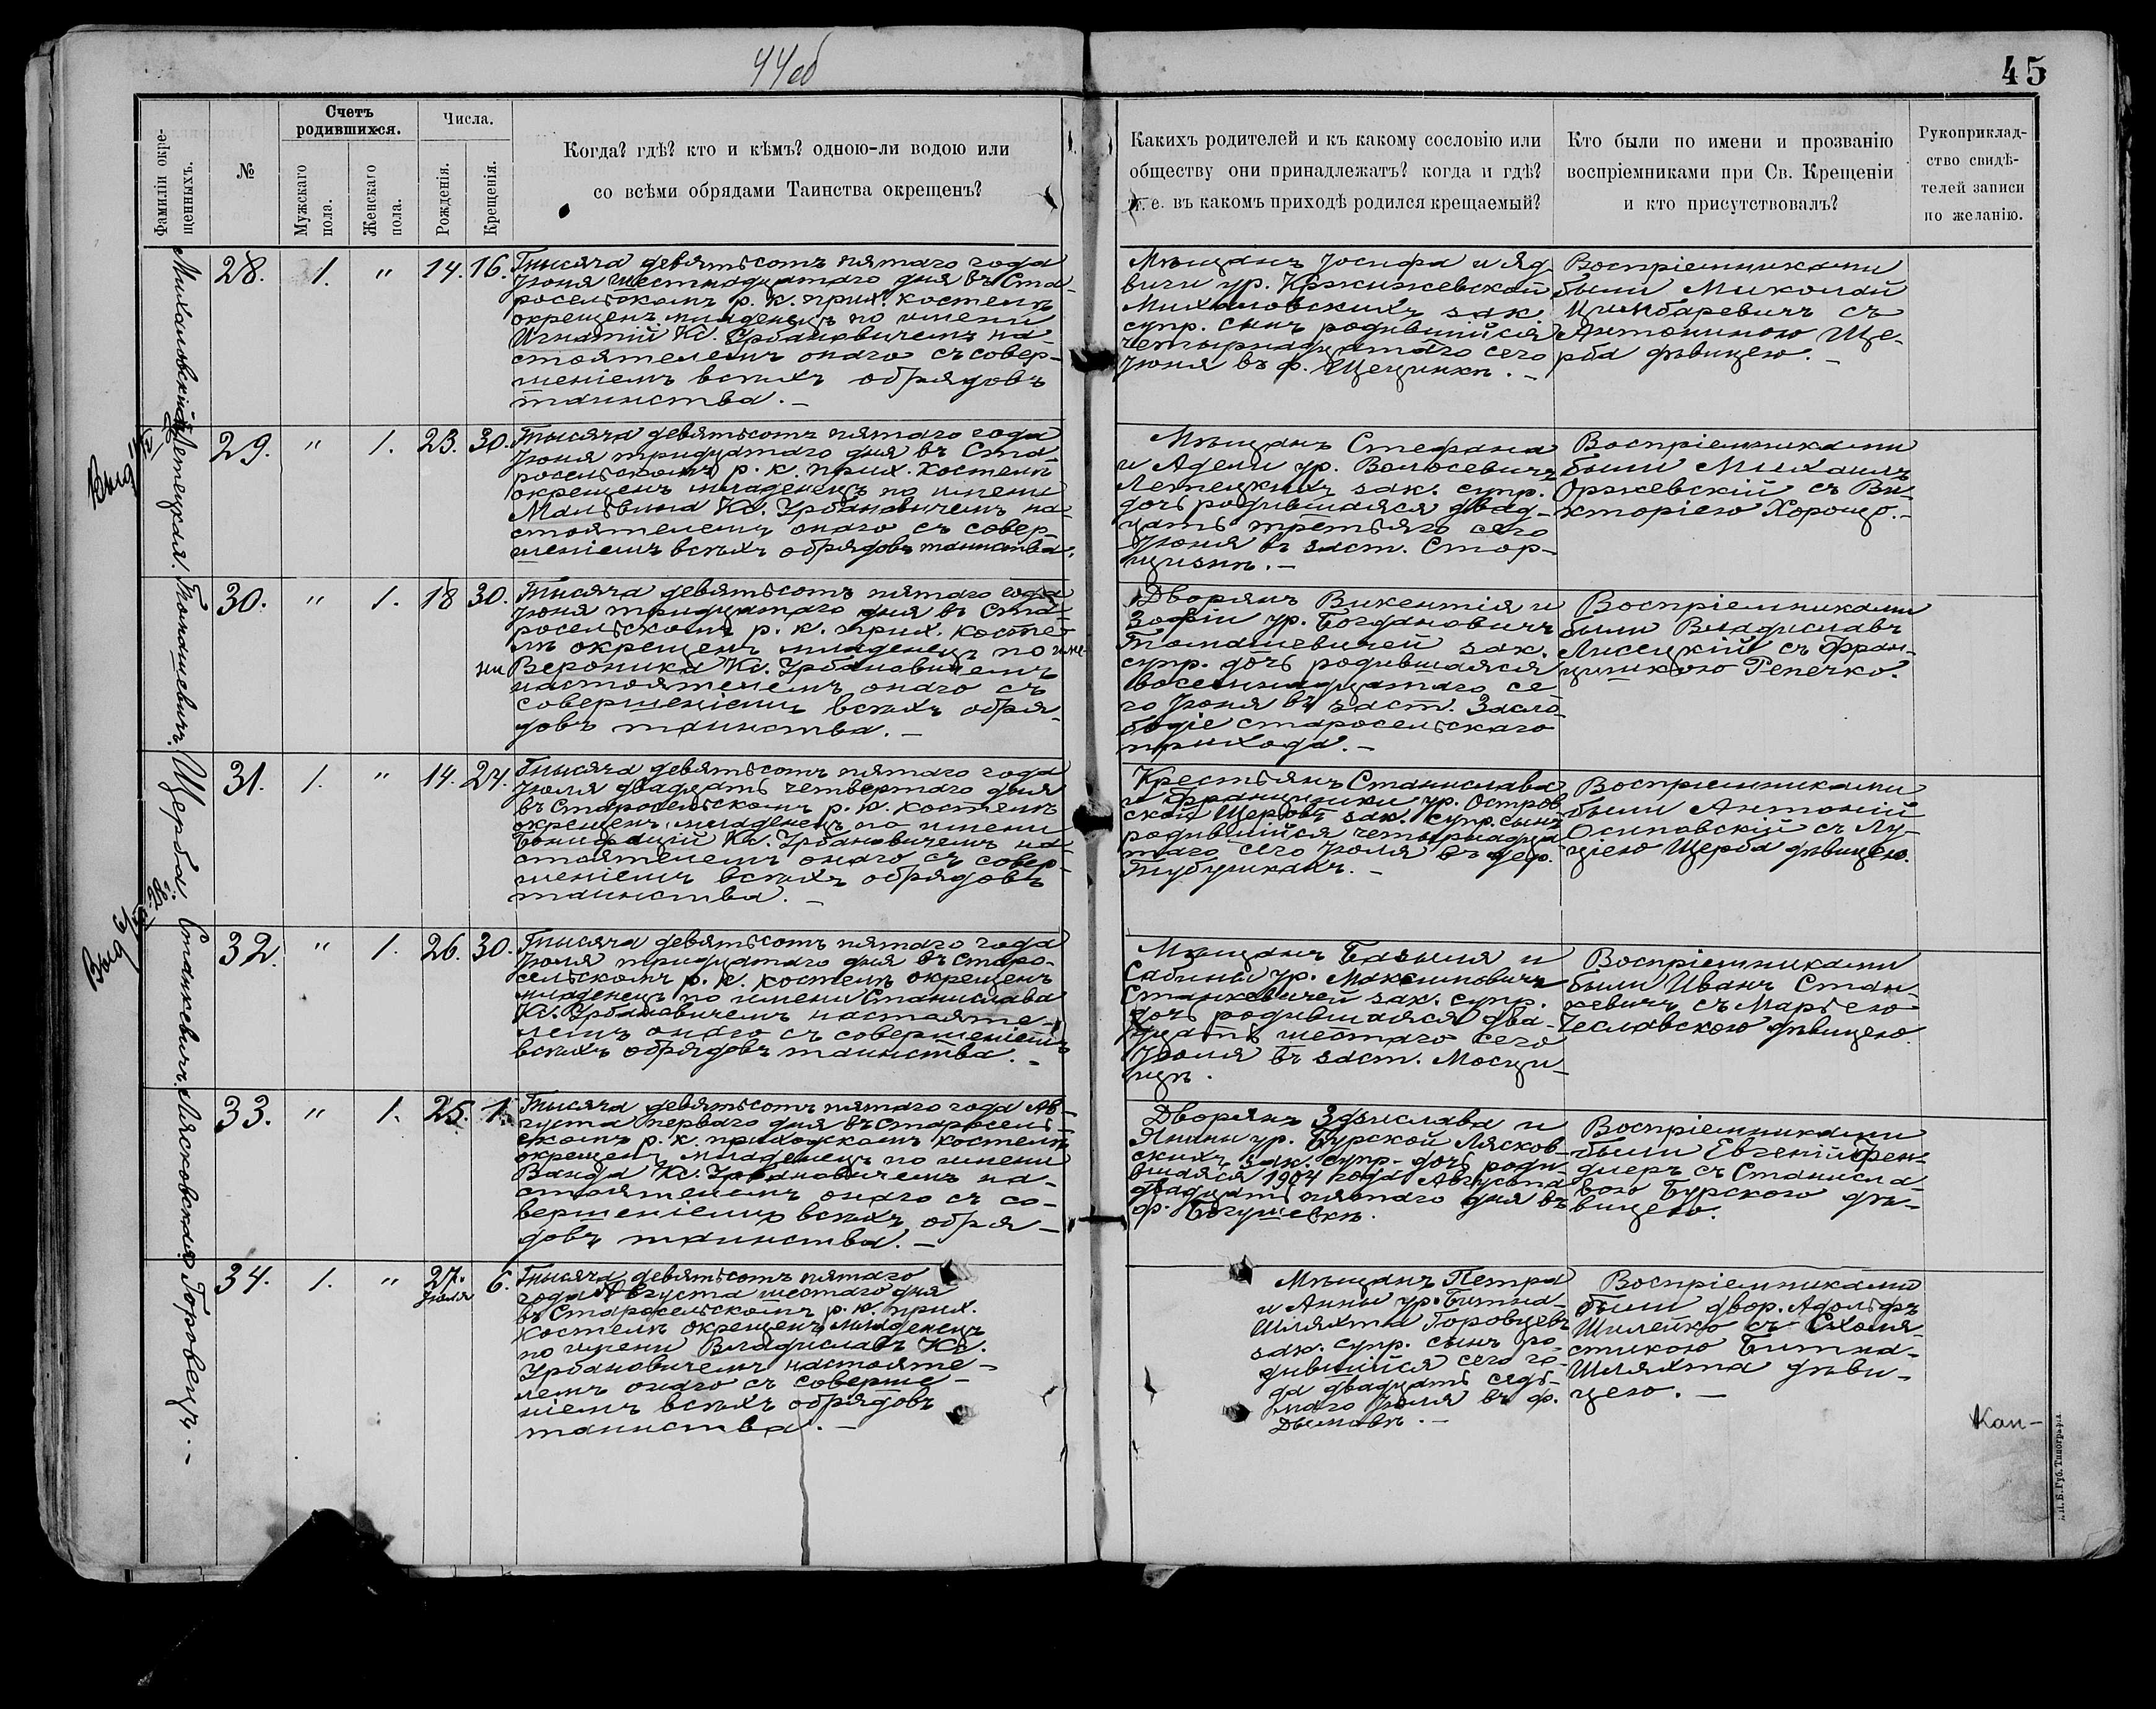 44об
45
Фамиліи окрещенныхъ.
№
Счетъ родившихся.
Мужскаго пола.
Женскаго пола.
Числа.
Рожденія.
Крещенія.
Когда? гдѣ? кто и кѣмъ? одною-ли водою или
со всѣми обрядами Таинства окрещенъ?
Какихъ родителей и къ какому сословію или
обществу они принадлежатъ? когда и гдѣ?
т. е. въ какомъ приходѣ родился крещаемый?
Кто были по имени и прозванію
воспріемниками при Св. Крещеніи
и кто присутствовалъ?
Рукоприклад-
ство свидѣ-
телей записи
по желанію.
Михаловскій
28. 1. " 14. 16.
Тысяча девятьсотъ пятаго года
Іюня шестнадцатаго дня въ Ста-
росельскомъ р. к. прих. костелѣ
окрещенъ младенецъ по имени
Игнатій Кс. Урбановичемъ на-
стоятелемъ онаго съ совер-
шеніемъ всѣхъ обрядовъ
таинства. —
Мѣщанъ Іосифа и Яд-
виги ур. Кржижевской
Михаловскихъ зак.
супр. сынъ родившійся
четырнадцатаго сего
Іюня въ ф. Щецинкѣ. —
Воспріемниками
были Миколай
Цимбаревичъ съ
Антониною Ще-
рба дѣвицею. —
Летецкая.
29. " 1. 23. 30.
Тысяча девятьсотъ пятаго года
Іюня тридцатаго дня въ Ста-
росельскомъ р. к. прих. костелѣ
окрещенъ младенецъ по имени
Мальвина Кс. Урбановичемъ на-
стоятелемъ онаго съ совер-
шеніемъ всѣхъ обрядовъ таинства.
Мѣщанъ Стефана
и Адели ур. Волосевичъ
Летецкихъ зак. супр.
дочь родившаяся двад-
цать третьяго сего
Іюня въ заст. Стор-
цизнѣ. —
Воспріемниками
были Михаилъ
Оржевскій съ Ви-
кторіею Хороцо. —
Томашевичъ.
30. " 1. 18 30.
Тысяча девятьсотъ пятаго года
Іюня тридцатаго дня въ Ста-
росельскомъ р. к. прих. косте-
лѣ окрещенъ младенецъ по име-
ни Вероника Кс. Урбановичемъ
настоятелемъ онаго съ
совершеніемъ всѣхъ обря-
довъ таинства. —
Дворянъ Викентія и
Зофіи ур. Богдановичъ
Томашевичей зак.
супр. дочь родившаяся
восемнадцатаго се-
го Іюня въ заст. Засло-
бодіе старосельскаго
прихода. —
Воспріемниками
были Владиславъ
Лисецкій съ Фран-
цишкою Репечко.
Щерба.
31. 1. " 14. 24.
Тысяча девятьсотъ пятаго года
Іюля двадцать четвертаго дня
въ Старосельскомъ р. к. костелѣ
окрещенъ младенецъ по имени
Бонифацій Кс. Урбановичемъ на-
стоятелемъ онаго съ совер-
шеніемъ всѣхъ обрядовъ
таинства. —
Крестьянъ Станислава
и Францишки ур. Остров-
ской Щербовъ зак. супр. сынъ
родившійся четырнадца-
таго сего Іюля въ дер.
Трубушкахъ. —
Воспріемниками
были Антоній
Осиповскій съ Лу-
ціею Щерба дѣвицею.
Станкевичъ.
32. " 1. 26. 30.
Тысяча девятьсотъ пятаго года
Іюля тридцатаго дня въ Старо-
сельскомъ р. к. костелѣ окрещенъ
младенецъ по имени Станислава
Кс. Урбановичемъ настояте-
лемъ онаго съ совершеніемъ
всѣхъ обрядовъ таинства. —
Мѣщанъ Базыля и
Сабины ур. Максимовичъ
Станкевичей зак. супр.
дочь родившаяся два-
дцать шестаго сего
Іюля въ заст. Мосци-
щѣ.
Воспріемниками
были Иванъ Стан-
кевичъ съ Марьею
Чеславскою дѣвицею.
Лясковская.
33. " 1. 25. 1.
Тысяча девятьсотъ пятаго года Ав-
густа перваго дня въ Старосель-
скомъ р. к. приходскомъ костелѣ
окрещенъ младенецъ по имени
Ванда Кс. Урбановичемъ на-
стоятелемъ онаго съ со-
вершеніемъ всѣхъ обря-
довъ таинства. —
Дворянъ Здзислава и
Янины ур. Бурской Лясков-
скихъ зак. супр. дочь роди-
вшаяся 1904 года Августа
двадцать пятаго дня въ
ф. Богушевкѣ.
Воспріемниками
были Евгеній Фен-
диеръ съ Станисла-
вою Бурскою дѣ-
вицею.
Горовецъ. —
34. 1. " 27. Іюля 6.
Тысяча девятьсотъ пятаго
года Августа шестаго дня
въ Старосельскомъ р. к. прих.
костелѣ окрещенъ младенецъ
по имени Владиславъ Кс.
Урбановичемъ настояте-
лемъ онаго съ соверше-
ніемъ всѣхъ обрядовъ
таинства. —
Мѣщанъ Петра
и Анны ур. Битна-
Шляхта Горовцевъ
зак. супр. сынъ ро-
дившійся сего го-
да двадцать седь-
маго Іюля въ ф.
Дымовѣ. —
Воспріемниками
были двор. Адольфъ
Шилейко съ Схоля-
стикою Битна-
Шляхта дѣви-
цею. —
Кан-